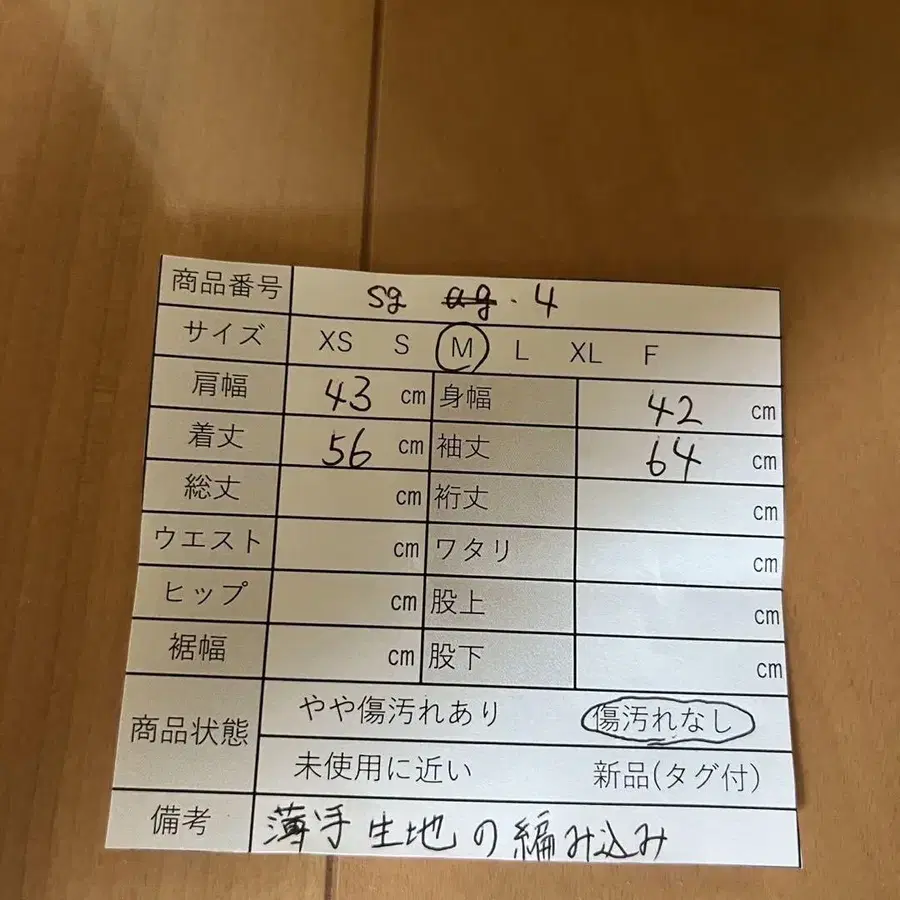 商品番号 sg ag.4
サイズ XS S M L XL F
肩幅 43 cm 身幅 42 cm
着丈 56 cm 袖丈 64 cm
総丈 cm 裄丈 cm
ウエスト cm ワタリ cm
ヒップ cm 股上 cm
裾幅 cm 股下 cm
商品状態 やや傷汚れあり 傷汚れなし
未使用に近い 新品(タグ付)
備考 薄手生地の編み込み